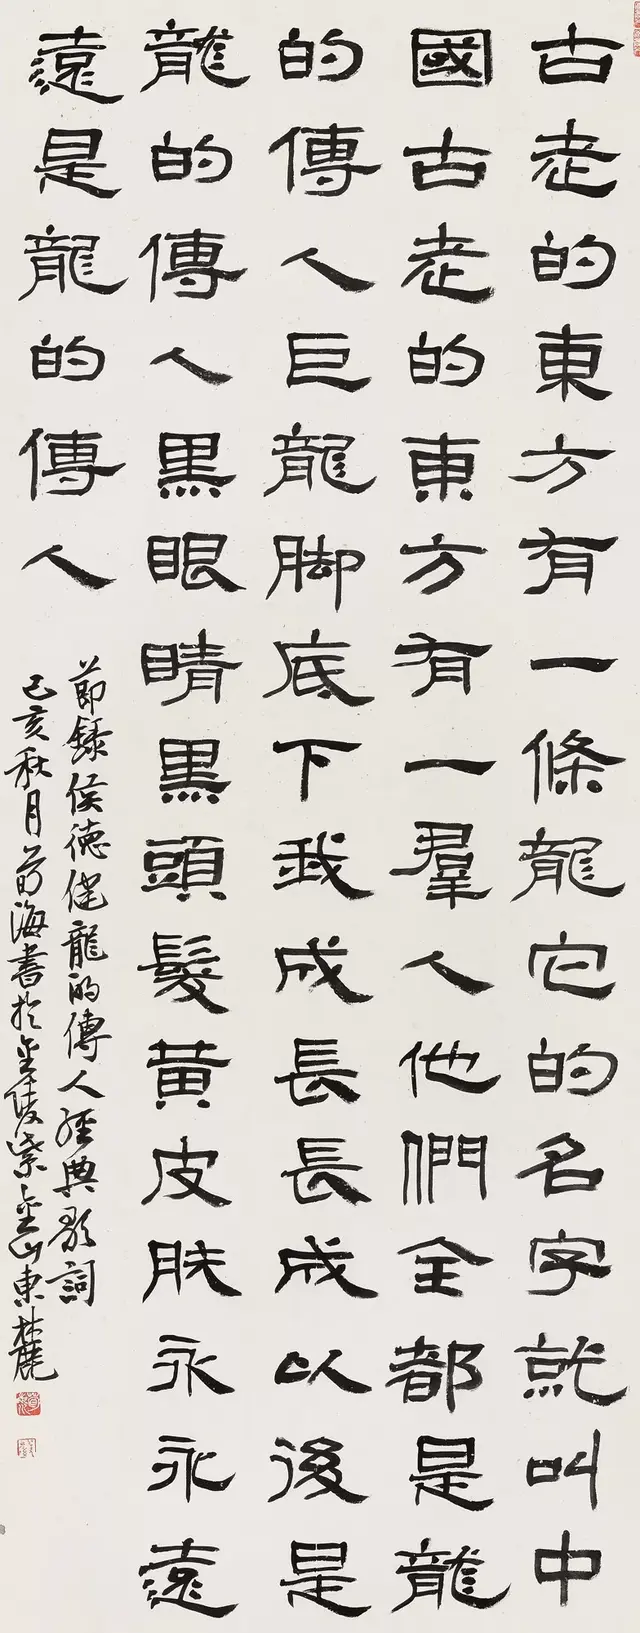 古老的東方有一條龍它的名字就叫中
國古老的東方有一羣人他們全都是龍
的傳人巨龍脚底下我成長長成以後是
龍的傳人黑眼睛黑頭髮黄皮肤永永遠
遠是龍的傳人
節録侯德健龍的傳人經典歌詞
己亥秋月海書於金陵紫金山東林麓